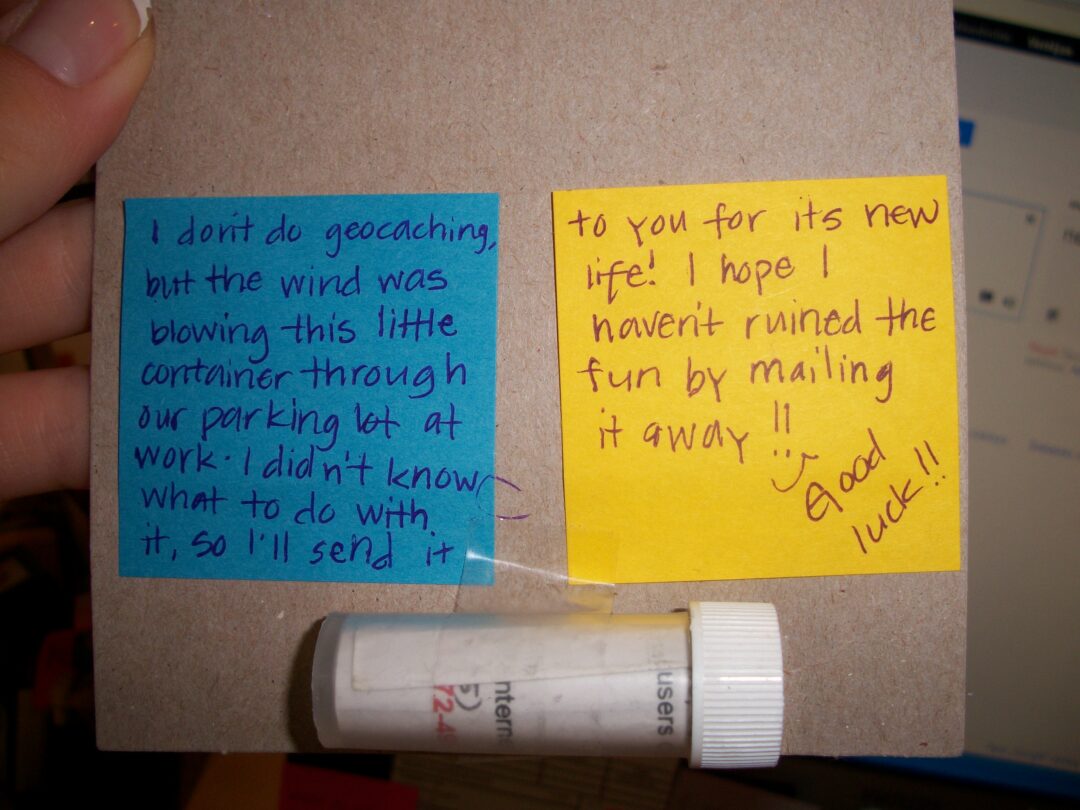 I don't do geocaching,
but the wind was
blowing this little
container through
our parking lot at
work. I didn't know
what to do with
it, so I'll send it
to you for its new
life! I hope I
haven't ruined the
fun by mailing
it away!!
Good
luck!!
users
intern
5)
72-4